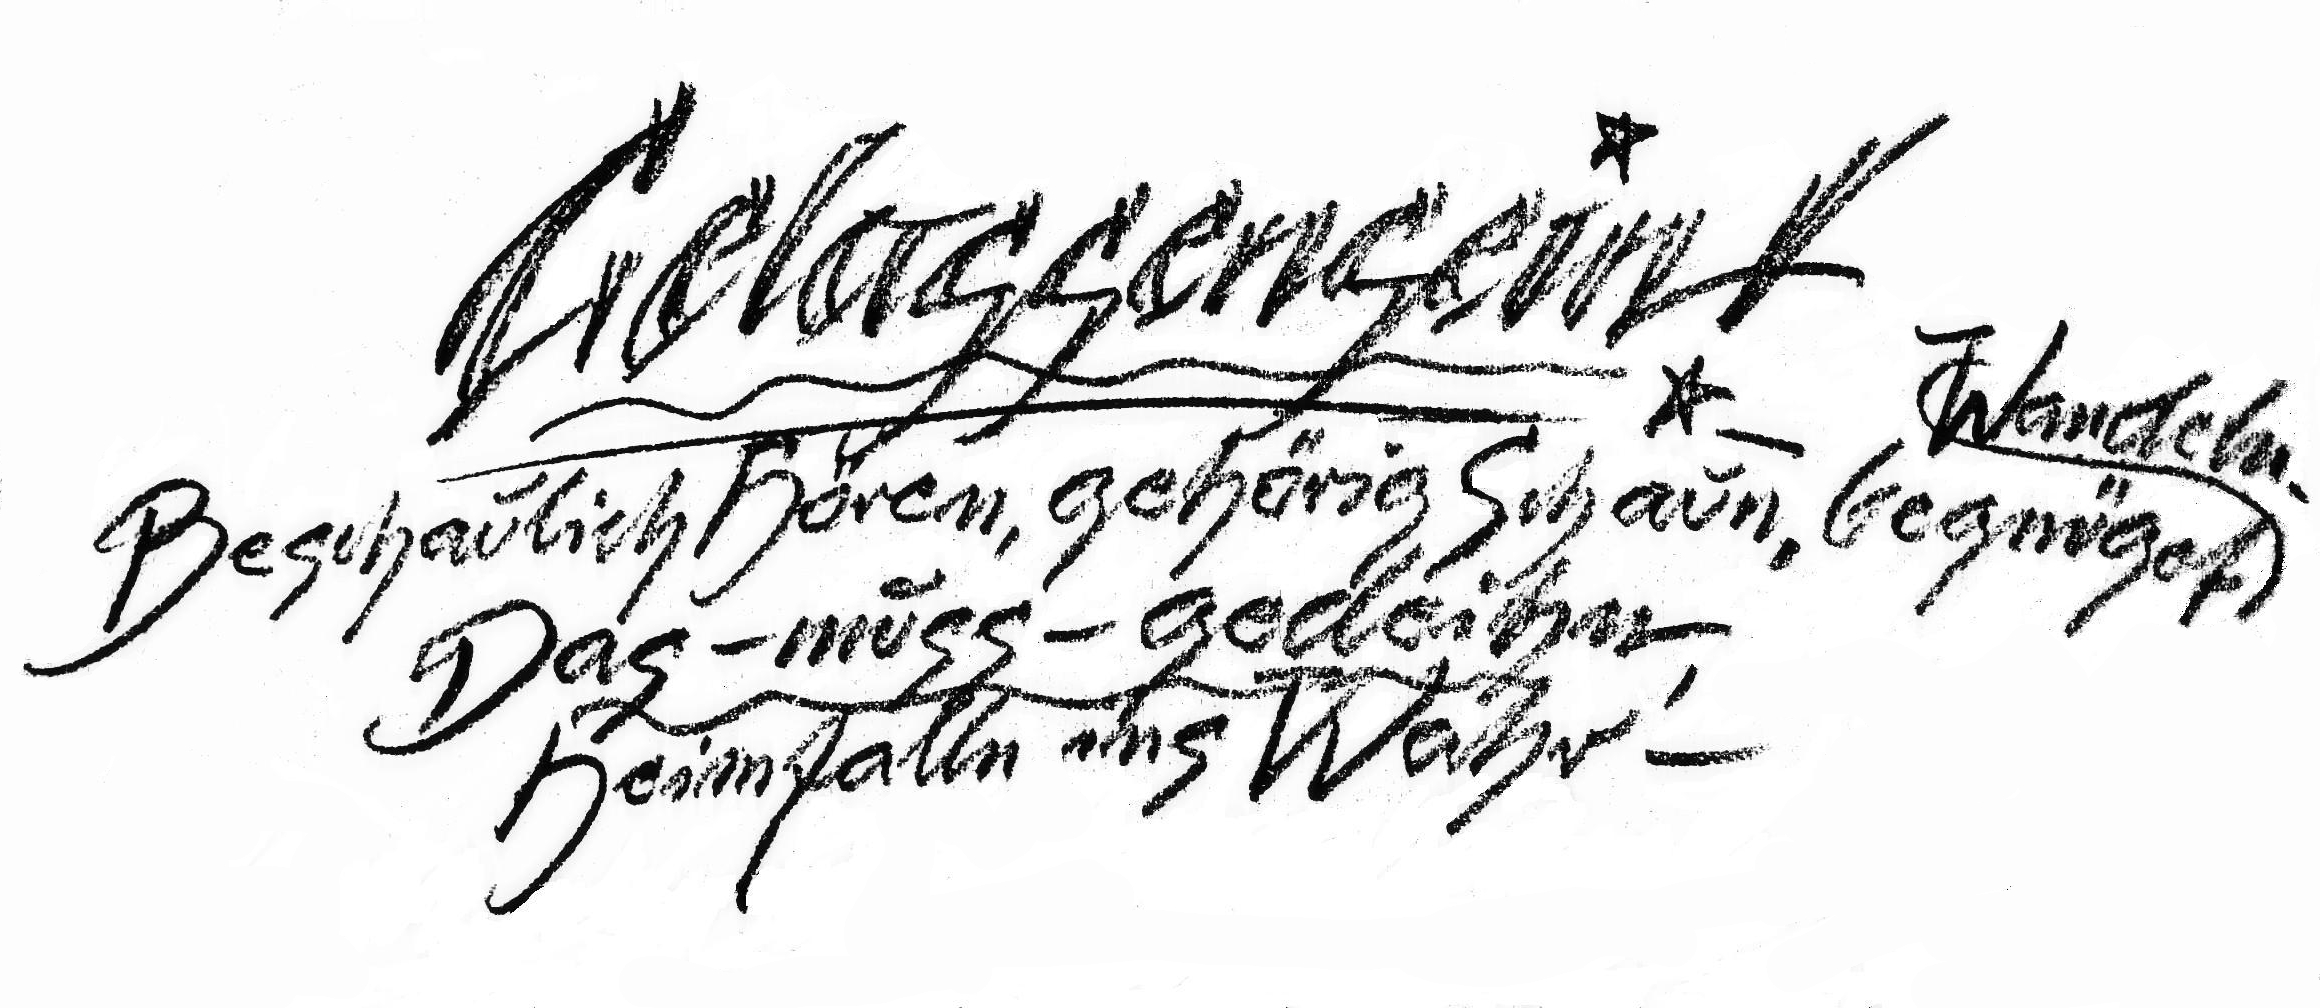 Gelassensein
Beschaulich Hören, gehörig Schaun, begnüget Wandeln.
Das - muss - gedeihn
heimfalln ins Wahr -